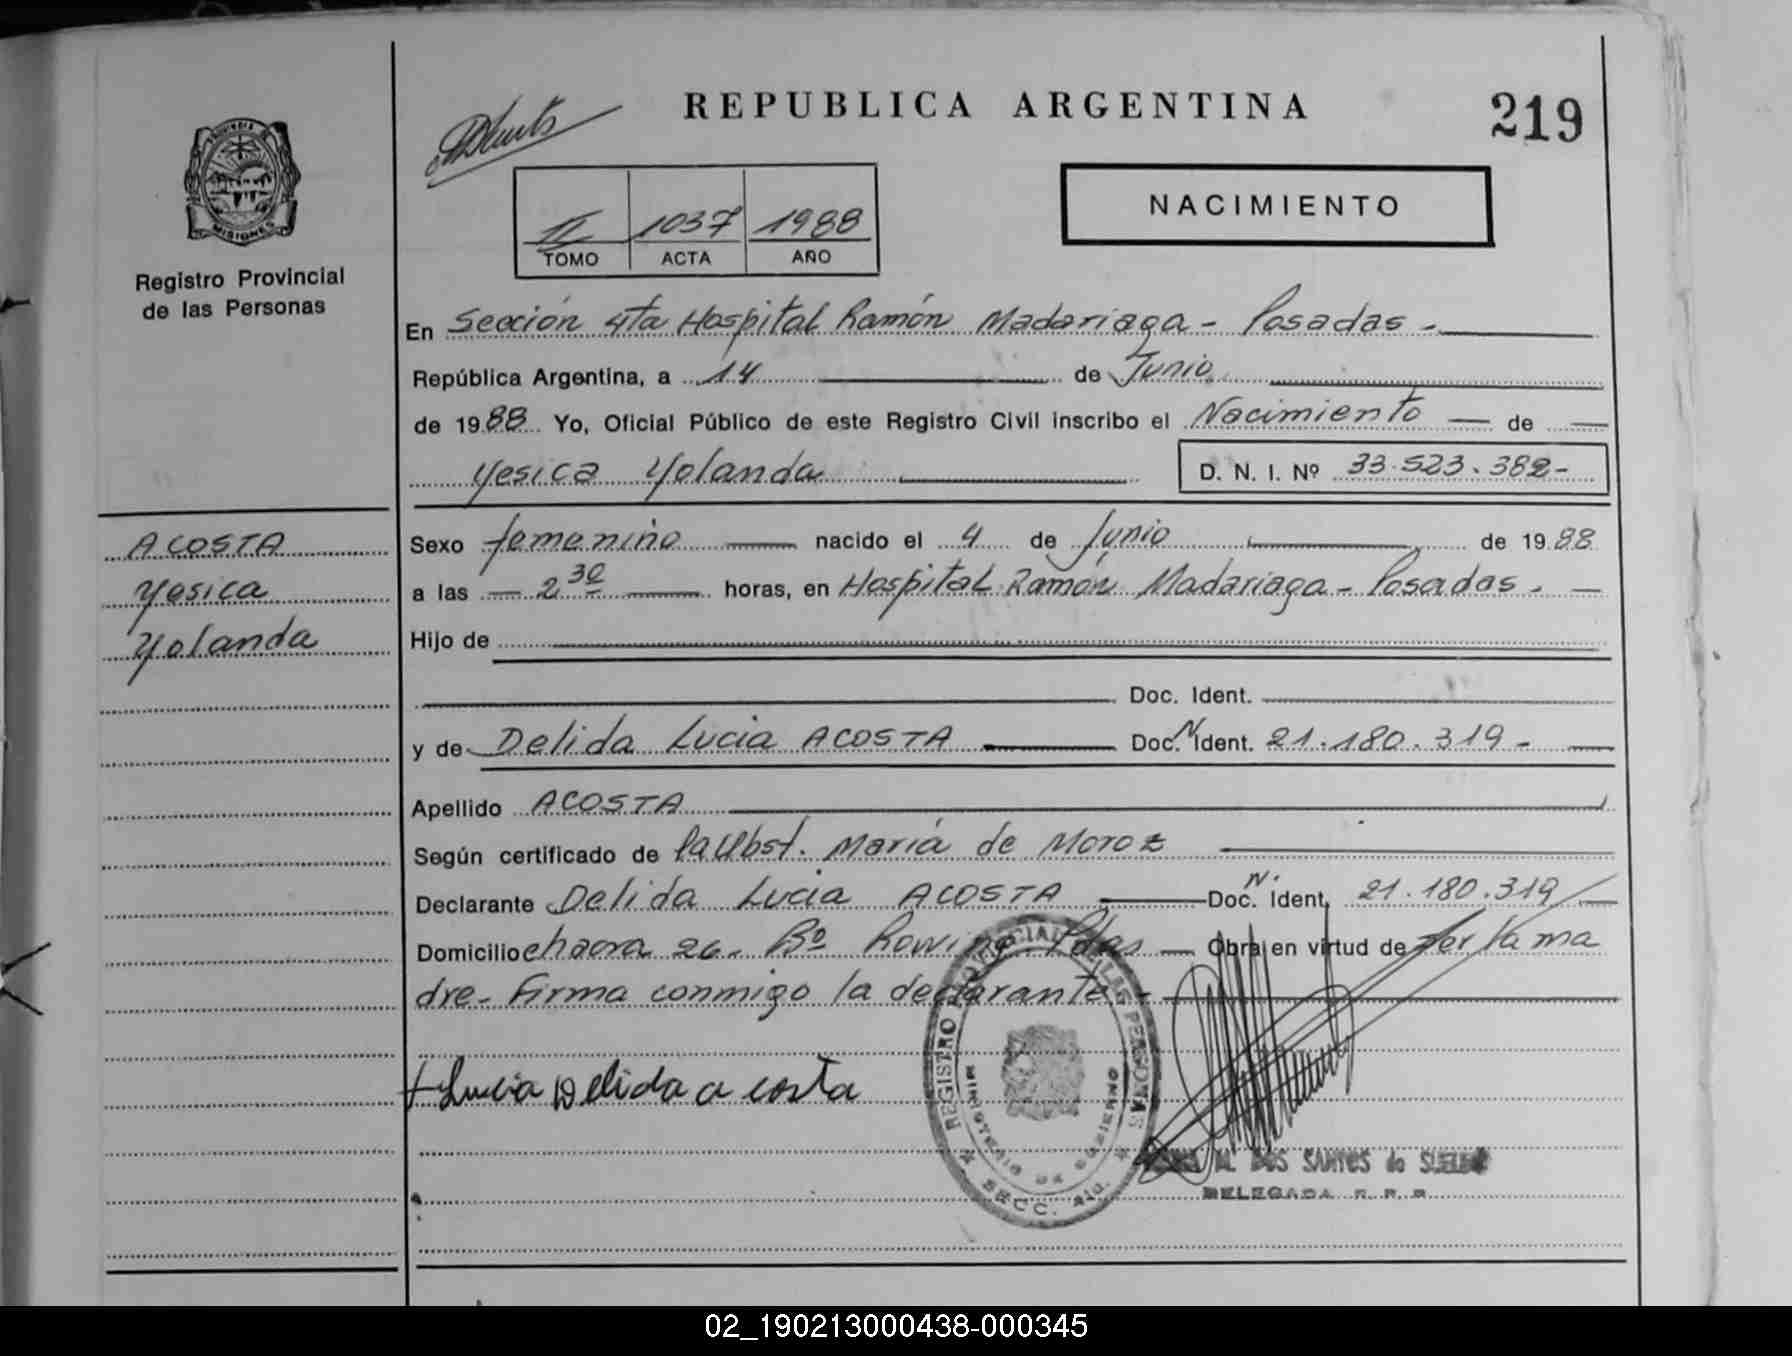 REPUBLICA ARGENTINA
219
PROVINCIA DE
MISIONES
Registro Provincial
de las Personas
II 1037 1988
TOMO ACTA AÑO
NACIMIENTO
En Sección 4ta Hospital Ramón Madariaga - Posadas -
República Argentina, a 14 de Junio
de 1988 Yo, Oficial Público de este Registro Civil inscribo el Nacimiento de
Yesica Yolanda D. N. I. Nº 33.523.382-
ACOSTA
Yesica
Yolanda
Sexo femenino nacido el 4 de Junio de 1988
a las 2 30 horas, en Hospital Ramón Madariaga - Posadas. -
Hijo de
Doc. Ident.
y de Delida Lucia ACOSTA Doc. N Ident. 21.180.319-
Apellido ACOSTA
Según certificado de la Obst. María de Moroz
Declarante Delida Lucia ACOSTA Doc. N. Ident. 21.180.319
Domicilio chacra 26. Bº Pdas - Obra en virtud de ser la ma
dre- Firma conmigo la declarante -
Lucia Delida acosta
REGISTRO PROVINCIAL DE LAS PERSONAS
MINISTERIO DE GOBIERNO
SECC. 4ta.
DOS SANTOS de
DELEGADA R. P. P.
02_190213000438-000345